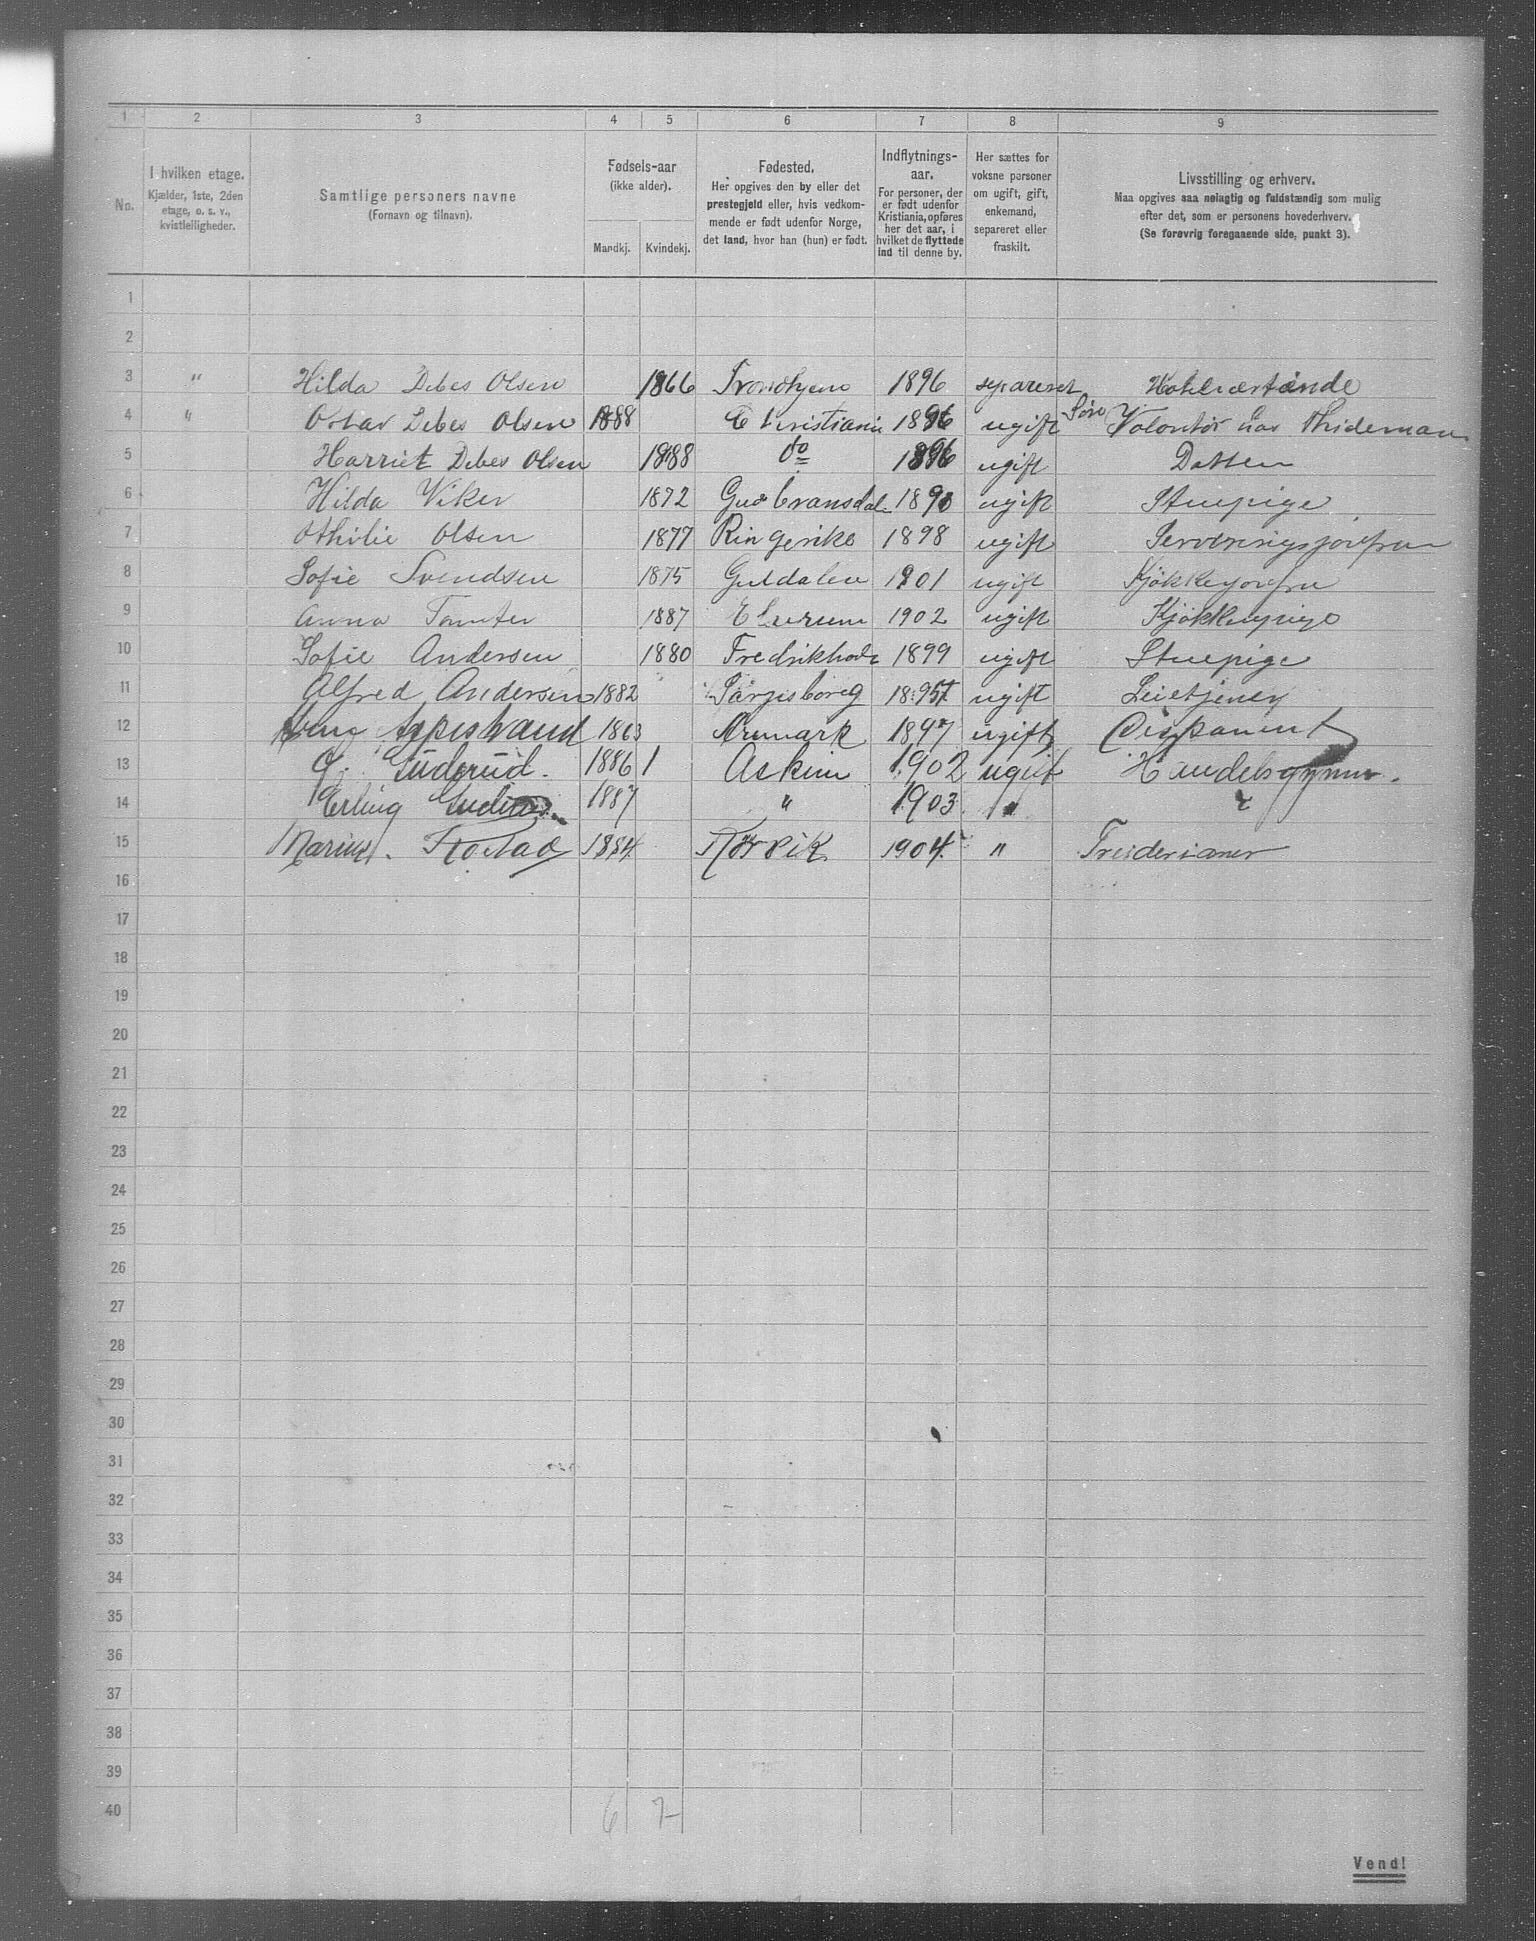 1 2 3 4 5 6 7 8 9
No.
I hvilken etage.
Kjælder, 1ste, 2den
etage, o. s. v.,
kvistleiligheder.
Samtlige personers navne
(Fornavn og tilnavn).
Fødsels-aar
(ikke alder).
Mandkj. Kvindekj.
Fødested.
Her opgives den by eller det
prestegjeld eller, hvis vedkom-
mende er født udenfor Norge,
det land, hvor han (hun) er født.
Indflytnings-
aar.
For personer, der
er født udenfor
Kristiania, opføres
her det aar, i
hvilket de flyttede
ind til denne by.
Her sættes for
voksne personer
om ugift, gift,
enkemand,
separeret eller
fraskilt.
Livsstilling og erhverv.
Maa opgives saa nøiagtig og fuldstændig som mulig
efter det, som er personens hovederhverv.
(Se forøvrig foregaaende side, punkt 3).
1
2
3 " Hilda Debes Olsen 1866 Trondhjem 1896 separeret Hotelværtinde
4 " Debes Olsen 1888 Christiania 1896 ugift Søn Volontør hos Thideman
5 Harriet Debes Olsen 1888 do 1896 ugift Datter
6 Hilda Viker 1872 Gudbransdal 1890 ugift Stuepige
7 Othilie Olsen 1877 Ringerike 1898 ugift Serveringsjomfru
8 Sofie Svendsen 1875 Guldalen 1901 ugift Kjøkkenjomfru
9 Anna Tomter 1887 Elverum 1902 ugift Kjøkkenpige
10 Sofie Andersen 1880 Fredrikhald 1899 ugift Stuepige
11 Alfred Andersen 1882 Sarpsborg 1895 ugift Leietjener
12 1863 Aremark 1897 ugift Disponent
13 Guderud. 1886 1 Askim 1902 ugift Handelsgymn.
14 Erling 1887 " 1903 " "
15 Marius 1884 1904 "
16
17
18
19
20
21
22
23
24
25
26
27
28
29
30
31
32
33
34
35
36
37
38
39
40 6 7
Vend!